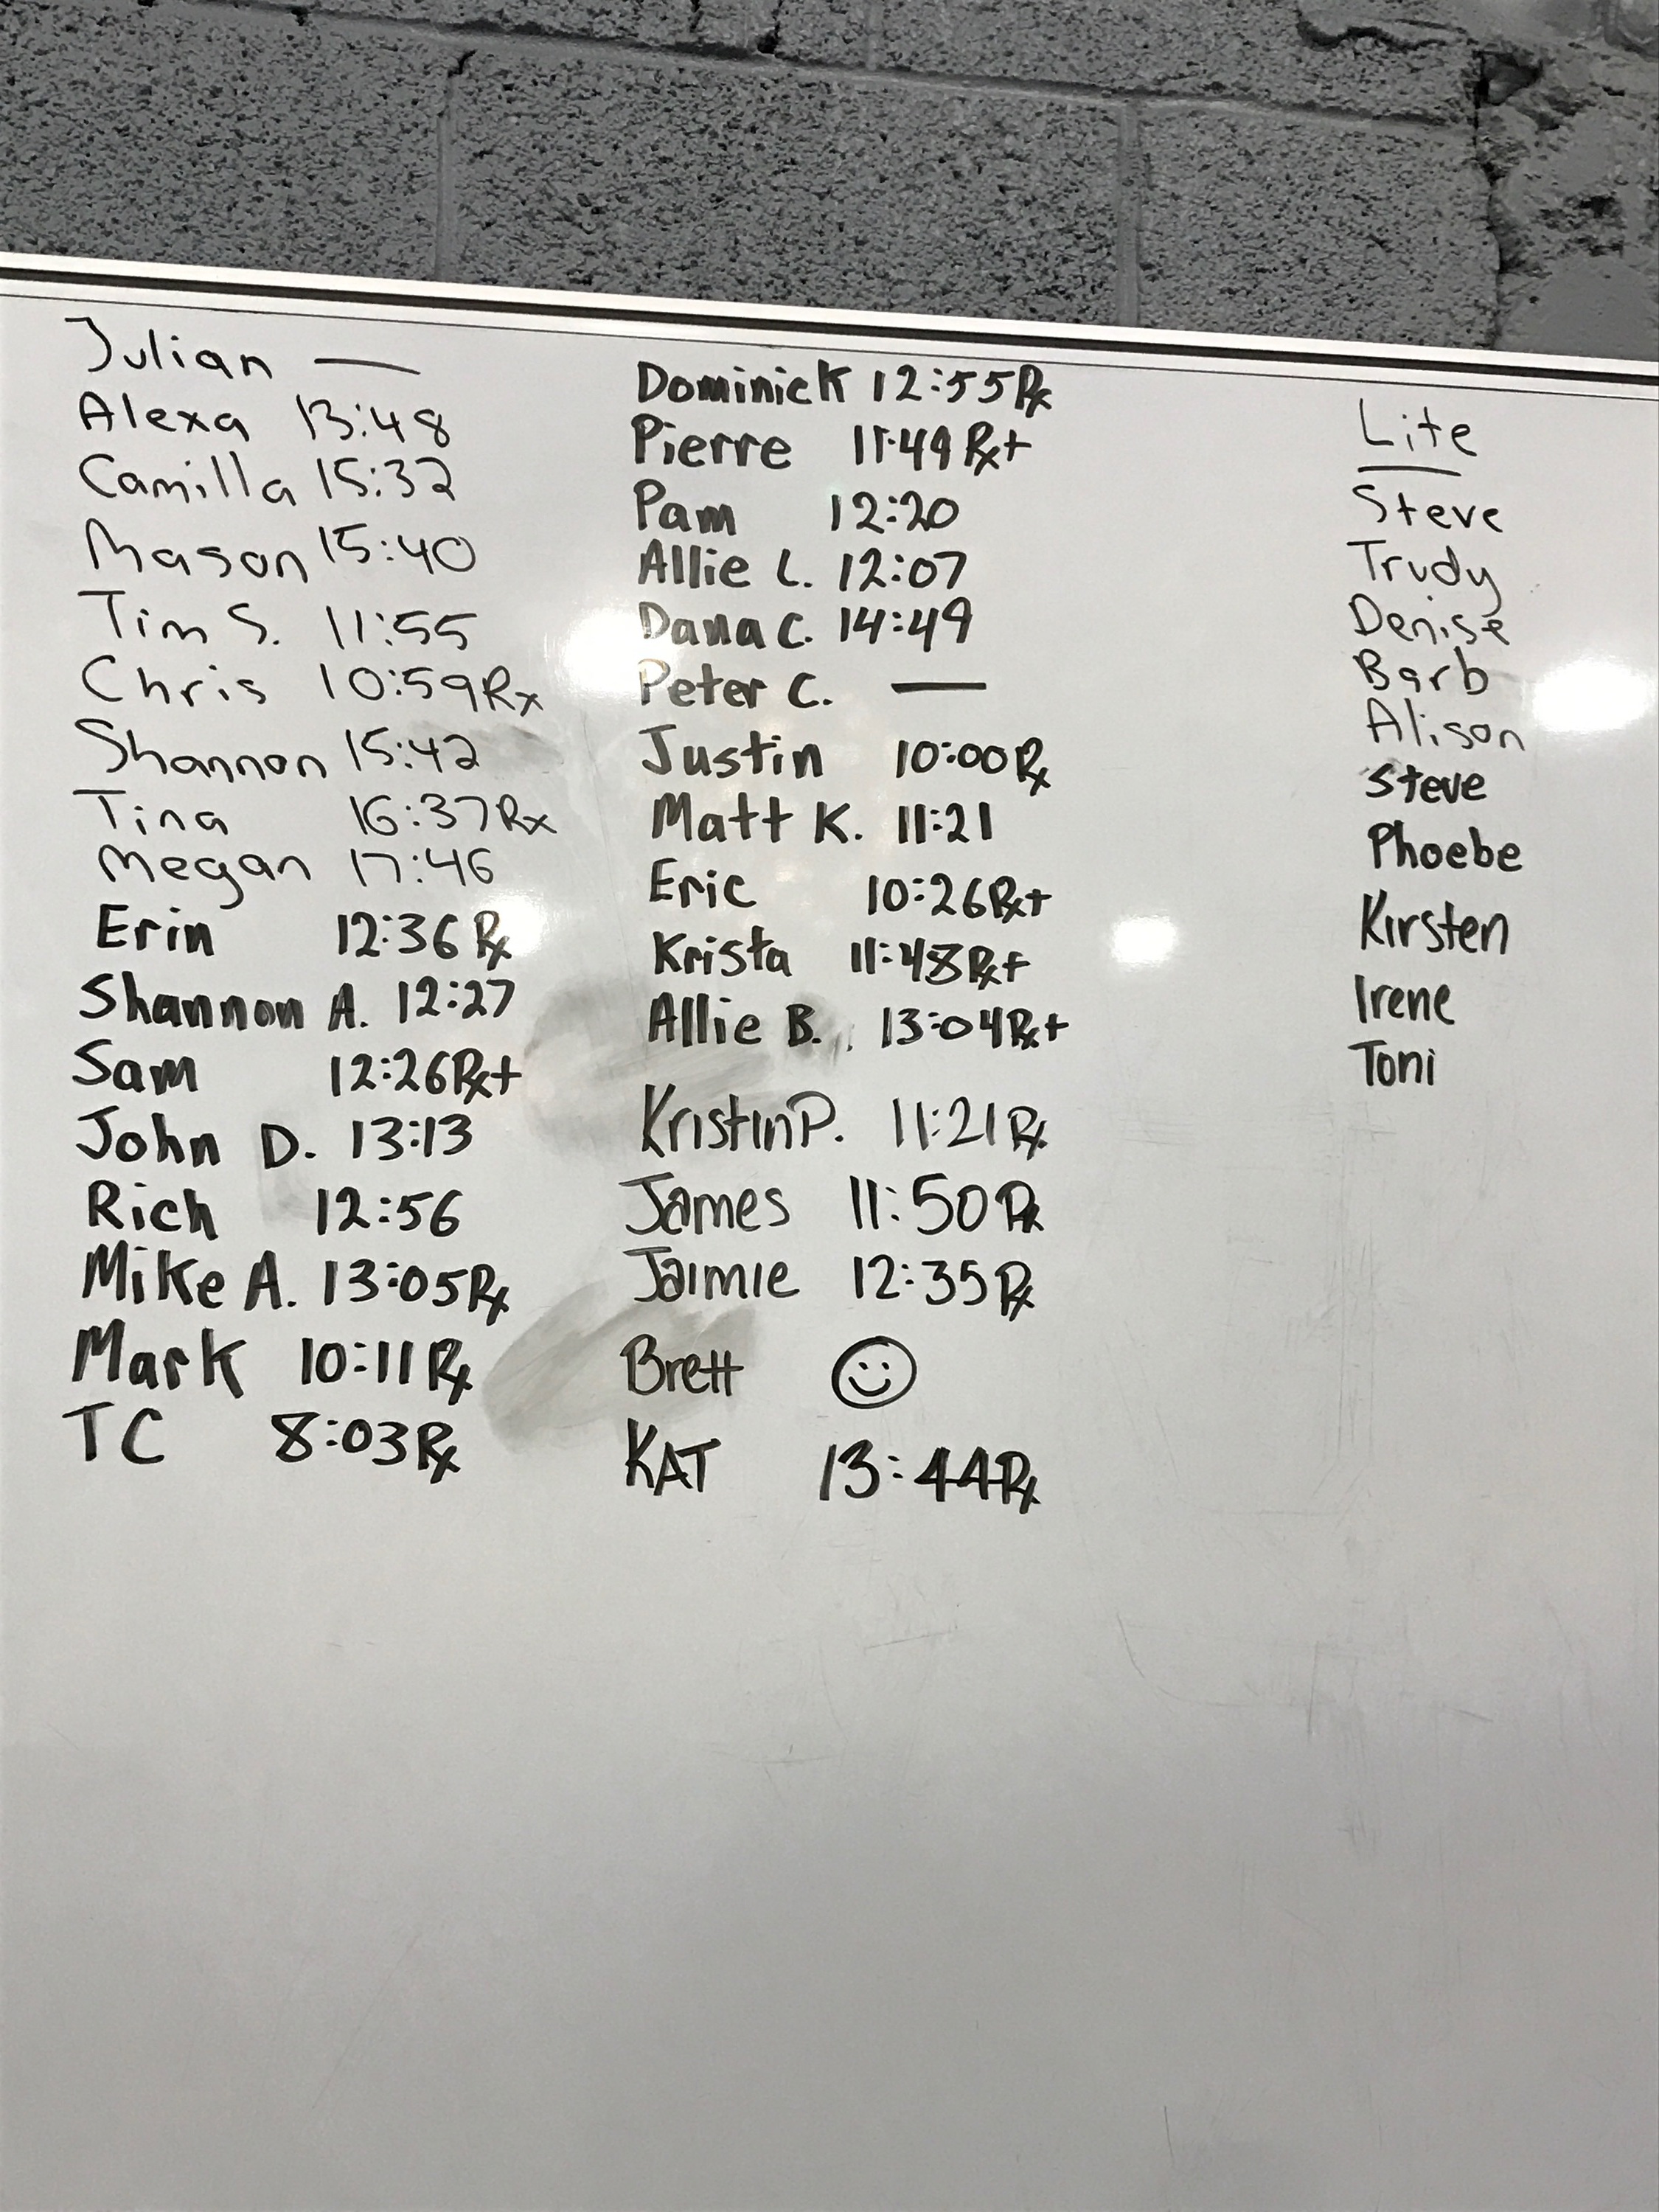 Julian —
Alexa 13:48
Camilla 15:32
Mason 15:40
Tim S. 11:55
Chris 10:59 Rx
Shannon 15:42
Tina 16:37 Rx
Megan 17:46
Erin 12:36 Rx
Shannon A. 12:27
Sam 12:26 Rx+
John D. 13:13
Rich 12:56
Mike A. 13:05 Rx
Mark 10:11 Rx
TC 8:03 Rx
Dominick 12:55 Rx
Pierre 11:49 Rx+
Pam 12:20
Allie L. 12:07
Dana C. 14:49
Peter C. —
Justin 10:00 Rx
Matt K. 11:21
Eric 10:26 Rx+
Krista 11:48 Rx+
Allie B. 13:04 Rx+
Kristin P. 11:21 Rx
James 11:50 Rx
Jaimie 12:35 Rx
Brett ☺
KAT 13:44 Rx
Lite
Steve
Trudy
Denise
Barb
Alison
Steve
Phoebe
Kirsten
Irene
Toni